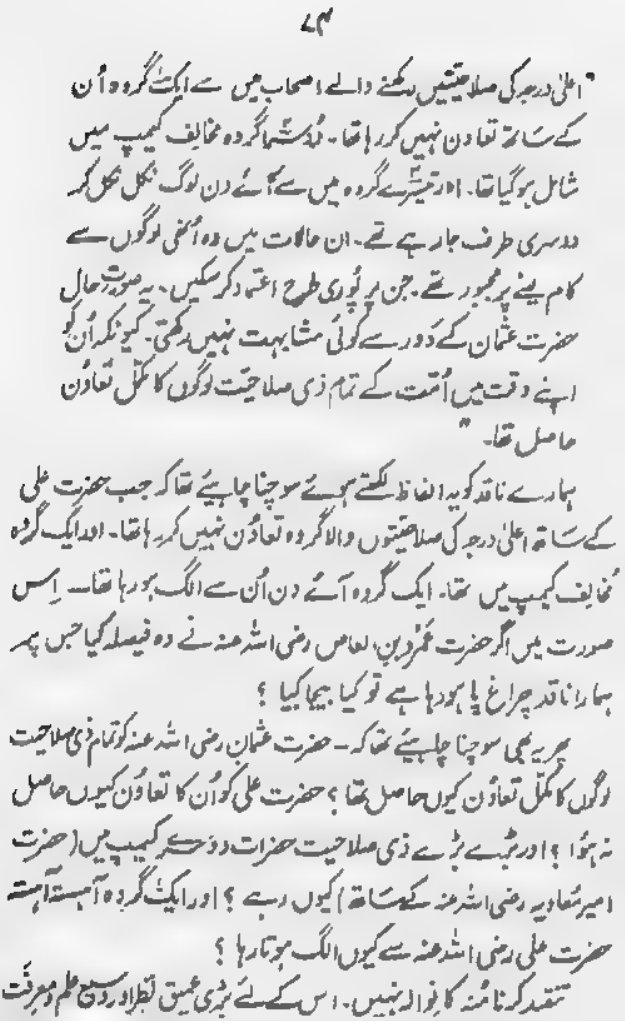 ۷۴
"اعلیٰ درجہ کی صلاحیتیں رکھنے والے اصحاب میں سے ایک گروہ اُن
کے ساتھ تعاون نہیں کر رہا تھا۔ دُوسرا گروہ مخالف کیمپ میں
شامل ہوگیا تھا۔ اور تیسرے گروہ میں سے آئے دن لوگ نکل نکل کر
دوسری طرف جا رہے تھے۔ ان حالات میں وہ اُنہی لوگوں سے
کام لینے پر مجبور تھے۔ جن پر پُوری طرح اعتماد کر سکیں۔ یہ صورتِ حال
حضرت عثمان کے دَور سے کوئی مشابہت نہیں رکھتی۔ کیونکہ اُن کو
اپنے وقت میں اُمّت کے تمام ذی صلاحیّت لوگوں کا مکمّل تعاوُن
حاصل تھا۔"
ہمارے ناقد کو یہ الفاظ لکھتے ہوئے سوچنا چاہیئے تھا کہ جب حضرت علی
کے ساتھ اعلیٰ درجہ کی صلاحیتوں والا گروہ تعاوُن نہیں کر رہا تھا۔ اور ایک گروہ
مُخالف کیمپ میں تھا۔ ایک گروہ آئے دن اُن سے الگ ہو رہا تھا۔ اِس
صورت میں اگر حضرت عَمرو بن العاص رضی اللہ عنہ نے وہ فیصلہ کیا جس پہ
ہمارا ناقد چراغ پا ہو رہا ہے تو کیا بیجا کیا ؟
پھر یہ بھی سوچنا چاہیئے تھا کہ۔ حضرت عثمان رضی اللہ عنہ کو تمام ذی صلاحیت
لوگوں کا مکمّل تعاوُن کیوں حاصل تھا ؟ حضرت علی کو اُن کا تعاوُن کیوں حاصل
نہ ہُوا ؟ اور بڑے بڑے ذی صلاحیت حضرات دوسرے کیمپ میں (حضرت
امیر مُعاویہ رضی اللہ عنہ کے ساتھ) کیوں رہے ؟ اور ایک گروہ آہستہ آہستہ
حضرت علی رضی اللہ عنہ سے کیوں الگ ہوتا رہا ؟
تنقید کرنا مُنہ کا نوالہ نہیں۔ اس کے لئے بڑی عمیق نظر اور وسیع علم و معرفت